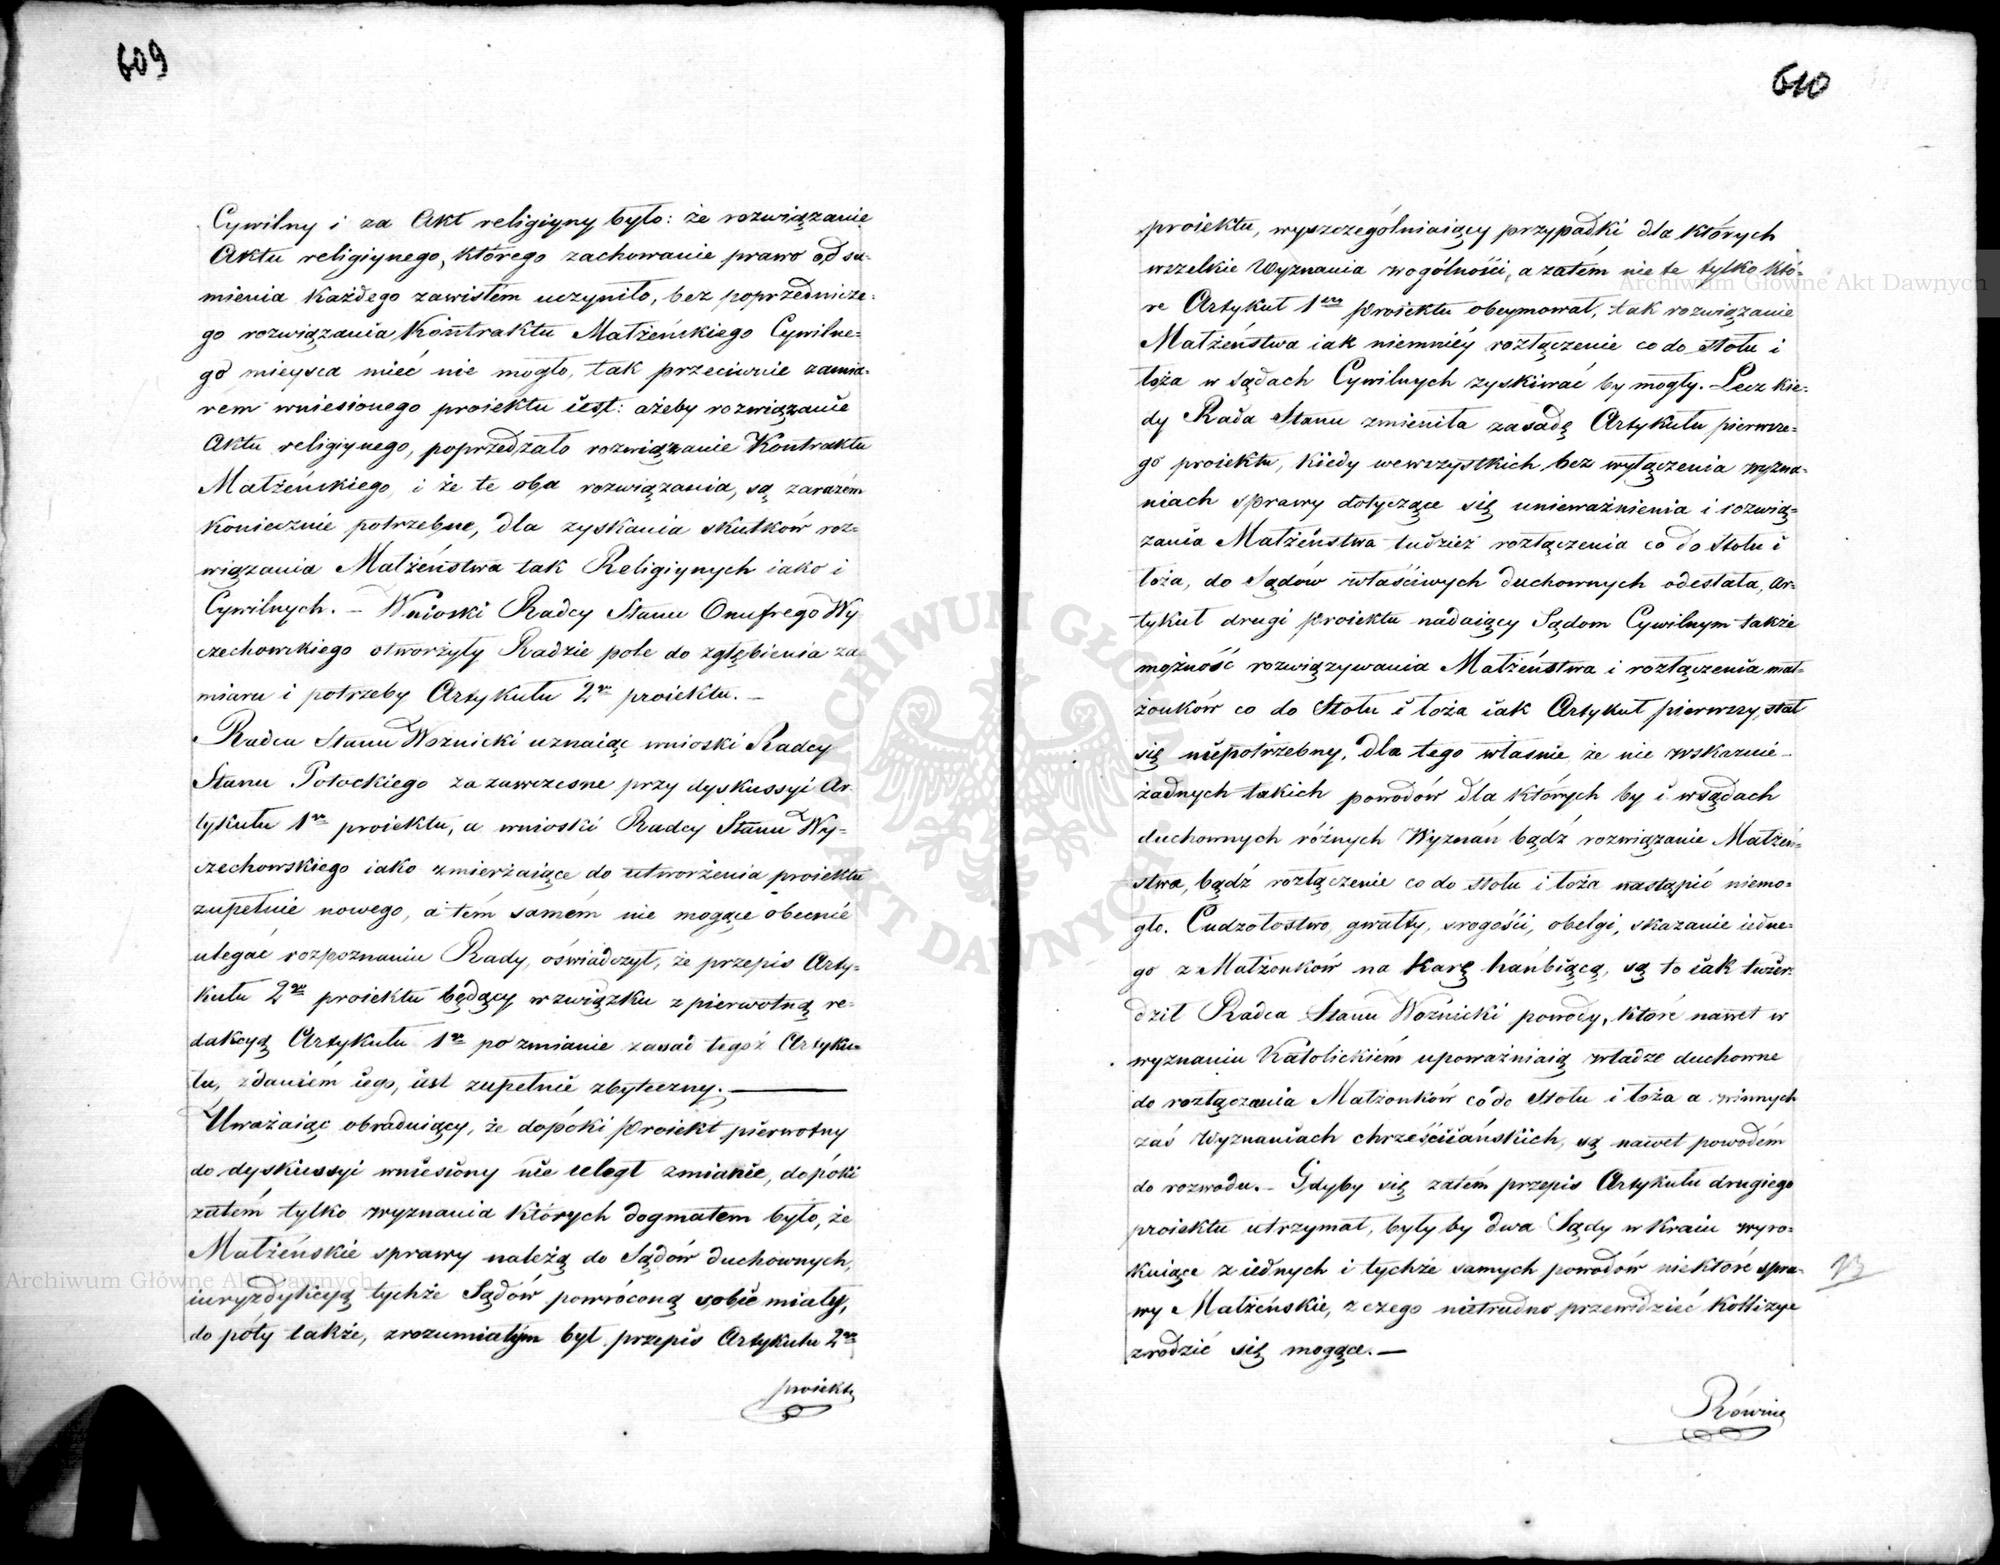 609
Cywilny i za Akt religiyny było: że rozwiązanie
Aktu religiynego, którego zachowanie prawo od su-
mienia każdego zawisłém uczyniło, bez poprzednicze-
go rozwiązania Kontraktu Małżeńskiego Cywilne-
go mieysca mieć nie mogło, tak przeciwnie zamia-
rem wniesionego proiektu iest: ażeby rozwiązanie
Aktu religiynego, poprzedzało rozwiązanie Kontraktu
Małżeńskiego, i że te oba rozwiązania, są zarazém
koniecznie potrzebne, dla zyskania skutków roz-
wiązania Małżeństwa tak Religiynych iako i
Cywilnych. – Wnioski Radcy Stanu Onufrego Wy
czechowskiego otworzyły Radzie pole do zgłębienia za-
miaru i potrzeby Artykułu 2go proiektu. –
Radca Stanu Woznicki uznaiąc wnioski Radcy
Stanu Potockiego za zawczesne przy dyskussyi Ar-
tykułu 1go proiektu, a wnioski Radcy Stanu Wy-
czechowskiego iako zmierzaiące do utworzenia proiektu
zupełnie nowego, a tém samém nie mogące obecnie
ulegać rozpoznaniu Rady, oświadczył, że przepis Arty-
kułu 2go proiektu będący w związku z pierwotną re-
dakcyą Artykułu 1go po zmianie zasad tegoż Artyku-
łu, zdaniém iego, iest zupełnie zbyteczny. –
Uważaiąc obraduiący, że dopóki Proiekt pierwotny
do dyskussyi wniesiony nie uległ zmianie, dopóki
zatém tylko wyznania których dogmatem było, że
Małżeńskie sprawy należą do Sądów duchownych,
iuryzdykcyą tychże Sądów powróconą sobie miały,
do póty także, zrozumiałym był przepis Artykułu 2go
proiektu
610
proiektu, wyszczególniaiący przypadki dla których
wszelkie Wyznania w ogólności, a zatém nie te tylko któ-
re Artykuł 1szy Proiektu obeymował, tak rozwiązanie
Małżeństwa iak niemniéy rozłączenie co do stołu i
łoża w sądach Cywilnych zyskiwać by mogły. Lecz kie-
dy Rada Stanu zmieniła zasadę Artykułu pierwsze-
go proiektu, kiedy we wszystkich bez wyłączenia wyzna-
niach sprawy dotyczące się unieważnienia i rozwią-
zania Małżeństwa tudzież rozłączenia co do Stołu i
łoża, do Sądów właściwych duchownych odesłała, Ar-
tykuł drugi Proiektu nadaiący Sądom Cywilnym także
możność rozwiązywania Małżeństwa i rozłączenia mał-
żonków co do Stołu i łoża iak Artykuł pierwszy, stał
się niepotrzebny, dla tego właśnie że nie wskazuie
żadnych takich powodów dla których by i w sądach
duchownych różnych Wyznań bądź rozwiązanie Małżeń-
stwa, bądź rozłączenie co do stołu i łoża nastąpić niemo-
gło. Cudzołostwo, gwałty, srogości, obelgi, skazanie iedne-
go z Małżonków na karę hańbiącą, są to iak twier-
dził Radca Stanu Woźnicki powody, które nawet w
wyznaniu Katolickiém upoważniaią władze duchowne
do rozłączania Małżonków co do Stołu i łoża a w innych
zaś Wyznaniach chrześciiańskich, są nawet powodém
do rozwodu. – Gdyby się zatém przepis Artykułu drugiego
proiektu utrzymał, były by dwa Sądy w Kraiu wyro-
kuiące z iednych i tychże samych powodów niektóre spra-
wy Małżeńskie, z czego nietrudno przewidzieć kollizye
zrodzić się mogące. –
Równie
Archiwum Główne Akt Dawnych
Archiwum Główne Akt Dawnych
ARCHIWUM GŁÓWNE AKT DAWNYCH